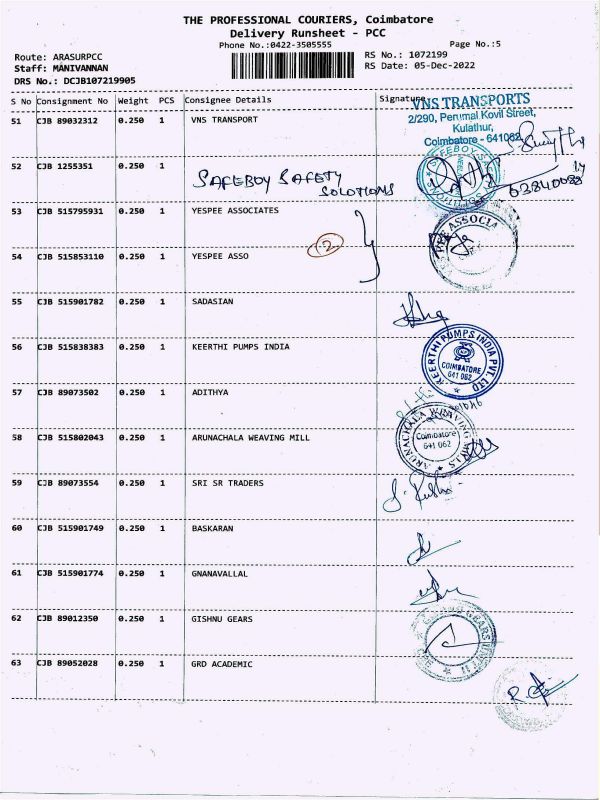 THE PROFESSIONAL COURIERS, Coimbatore
Delivery Runsheet - PCC
Phone No.:0422-3505555
Page No.:5
Route: ARASURPCC
RS No.: 1072199
Staff: MANIVANNAN
RS Date: 05-Dec-2022
DRS No.: DCJB107219905
S No Consignment No Weight PCS Consignee Details Signature
VNS TRANSPORTS
2/290, Perumal Kovil Street,
Kulathur,
Coimbatore - 641062
51 CJB 89032312 0.250 1 VNS TRANSPORT
52 CJB 1255351 0.250 1
SAFEBOY SAFETY
SOLUTIONS
53 CJB 515795931 0.250 1 YESPEE ASSOCIATES
2
54 CJB 515853110 0.250 1 YESPEE ASSO
55 CJB 515901782 0.250 1 SADASIAN
56 CJB 515838383 0.250 1 KEERTHI PUMPS INDIA
KEERTHI PUMPS INDIA PVT. LTD
COIMBATORE
641 062
57 CJB 89073502 0.250 1 ADITHYA
58 CJB 515802043 0.250 1 ARUNACHALA WEAVING MILL
ARUNACHALA WEAVING MILLS
Coimbatore
641 062
59 CJB 89073554 0.250 1 SRI SR TRADERS
60 CJB 515901749 0.250 1 BASKARAN
61 CJB 515901774 0.250 1 GNANAVALLAL
62 CJB 89012350 0.250 1 GISHNU GEARS
63 CJB 89052028 0.250 1 GRD ACADEMIC